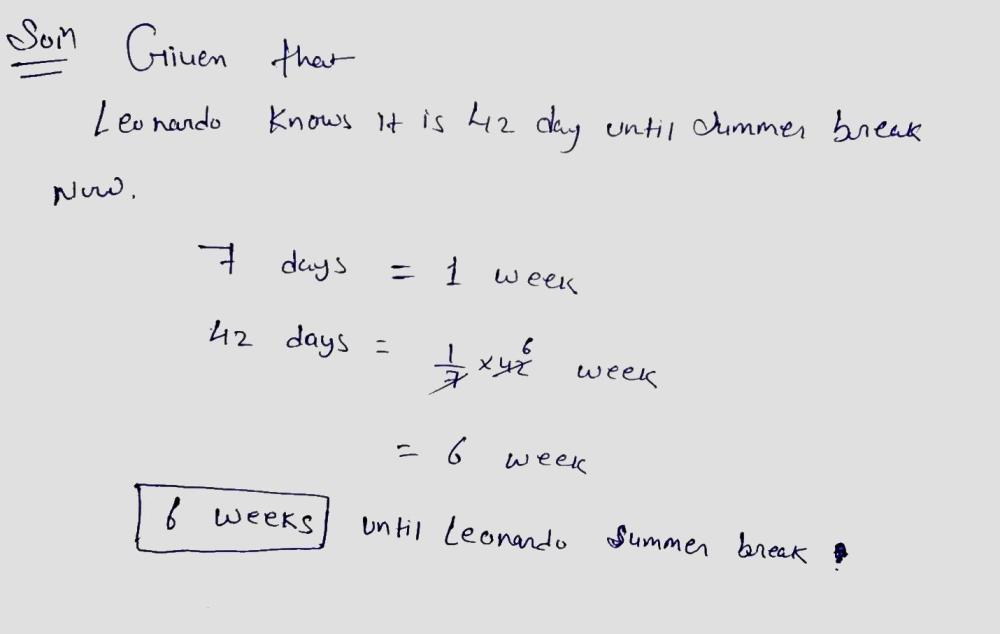 Soln Given that
Leonardo Knows it is 42 day until summer break
Now.
7 days = 1 week
42 days = 1/7 × 42 6 week
= 6 week
6 weeks until Leonardo Summer break.